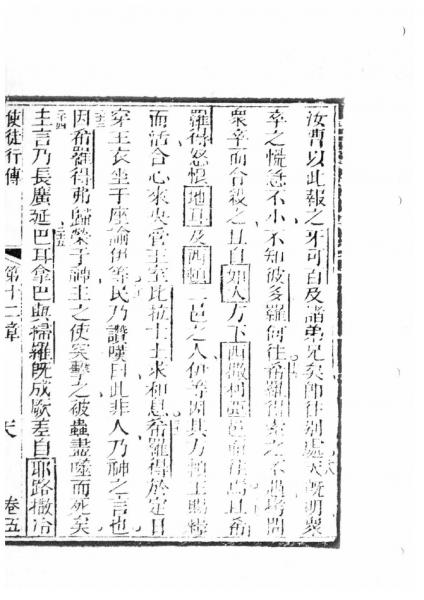 汝曹以此報之牙可百及諸弟兄矣卽往別處天旣明衆
卒之慌恙不小不知彼多羅何往希羅得索之不遇拷問
衆卒而令殺之且自如大方下西撒利亞邑而住焉且希
羅得怒恨地耳及西頓二邑之人伊等因其方
而活合心來央管王室比拉士士求和息希羅得於定日
穿王衣坐于座論伊等民乃讚嘆曰此非人乃神之言也
因希羅得弗歸榮于神主之使突擊之被蟲盡噬而死矣
主言乃長廣延巴耳拿巴與掃羅旣成厥差自耶路撒冶
使徒行傳
第十二章
卷五
二十三
二十四
二十五